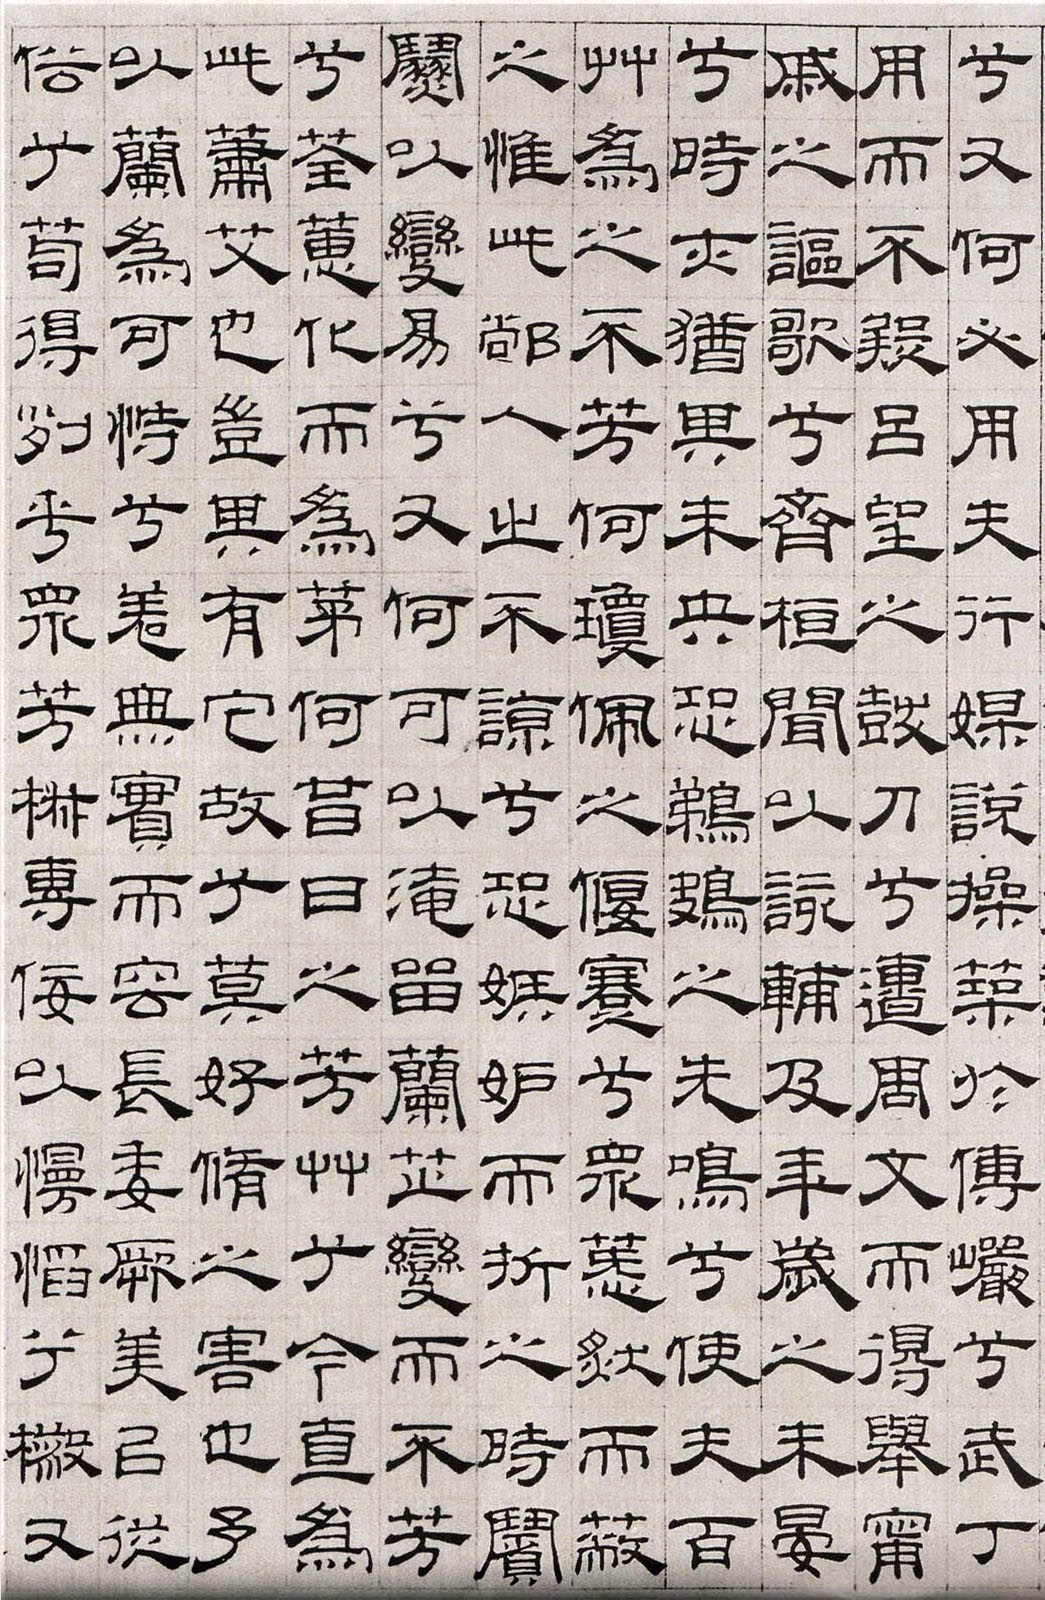 兮又何必用夫行媒說操築於傅巖兮武丁
用而不疑呂望之鼓刀兮遭周文而得舉甯
戚之謳歌兮齊桓聞以該輔及年歲之未晏
兮時亦猶其未央恐鵜鴂之先鳴兮使夫百
艸為之不芳何瓊佩之偃蹇兮眾薆然而蔽
之惟此䣊人之不諒兮恐嫉妒而折之時繽
紛以變易兮又何可以淹留蘭芷變而不芳
兮荃蕙化而為茅何昔日之芳艸兮今直為
此蕭艾也豈其有它故兮莫好脩之害也予
以蘭為可恃兮羌無實而容長委厥美㠯從
俗兮苟得列乎眾芳椒專佞以慢慆兮樧又